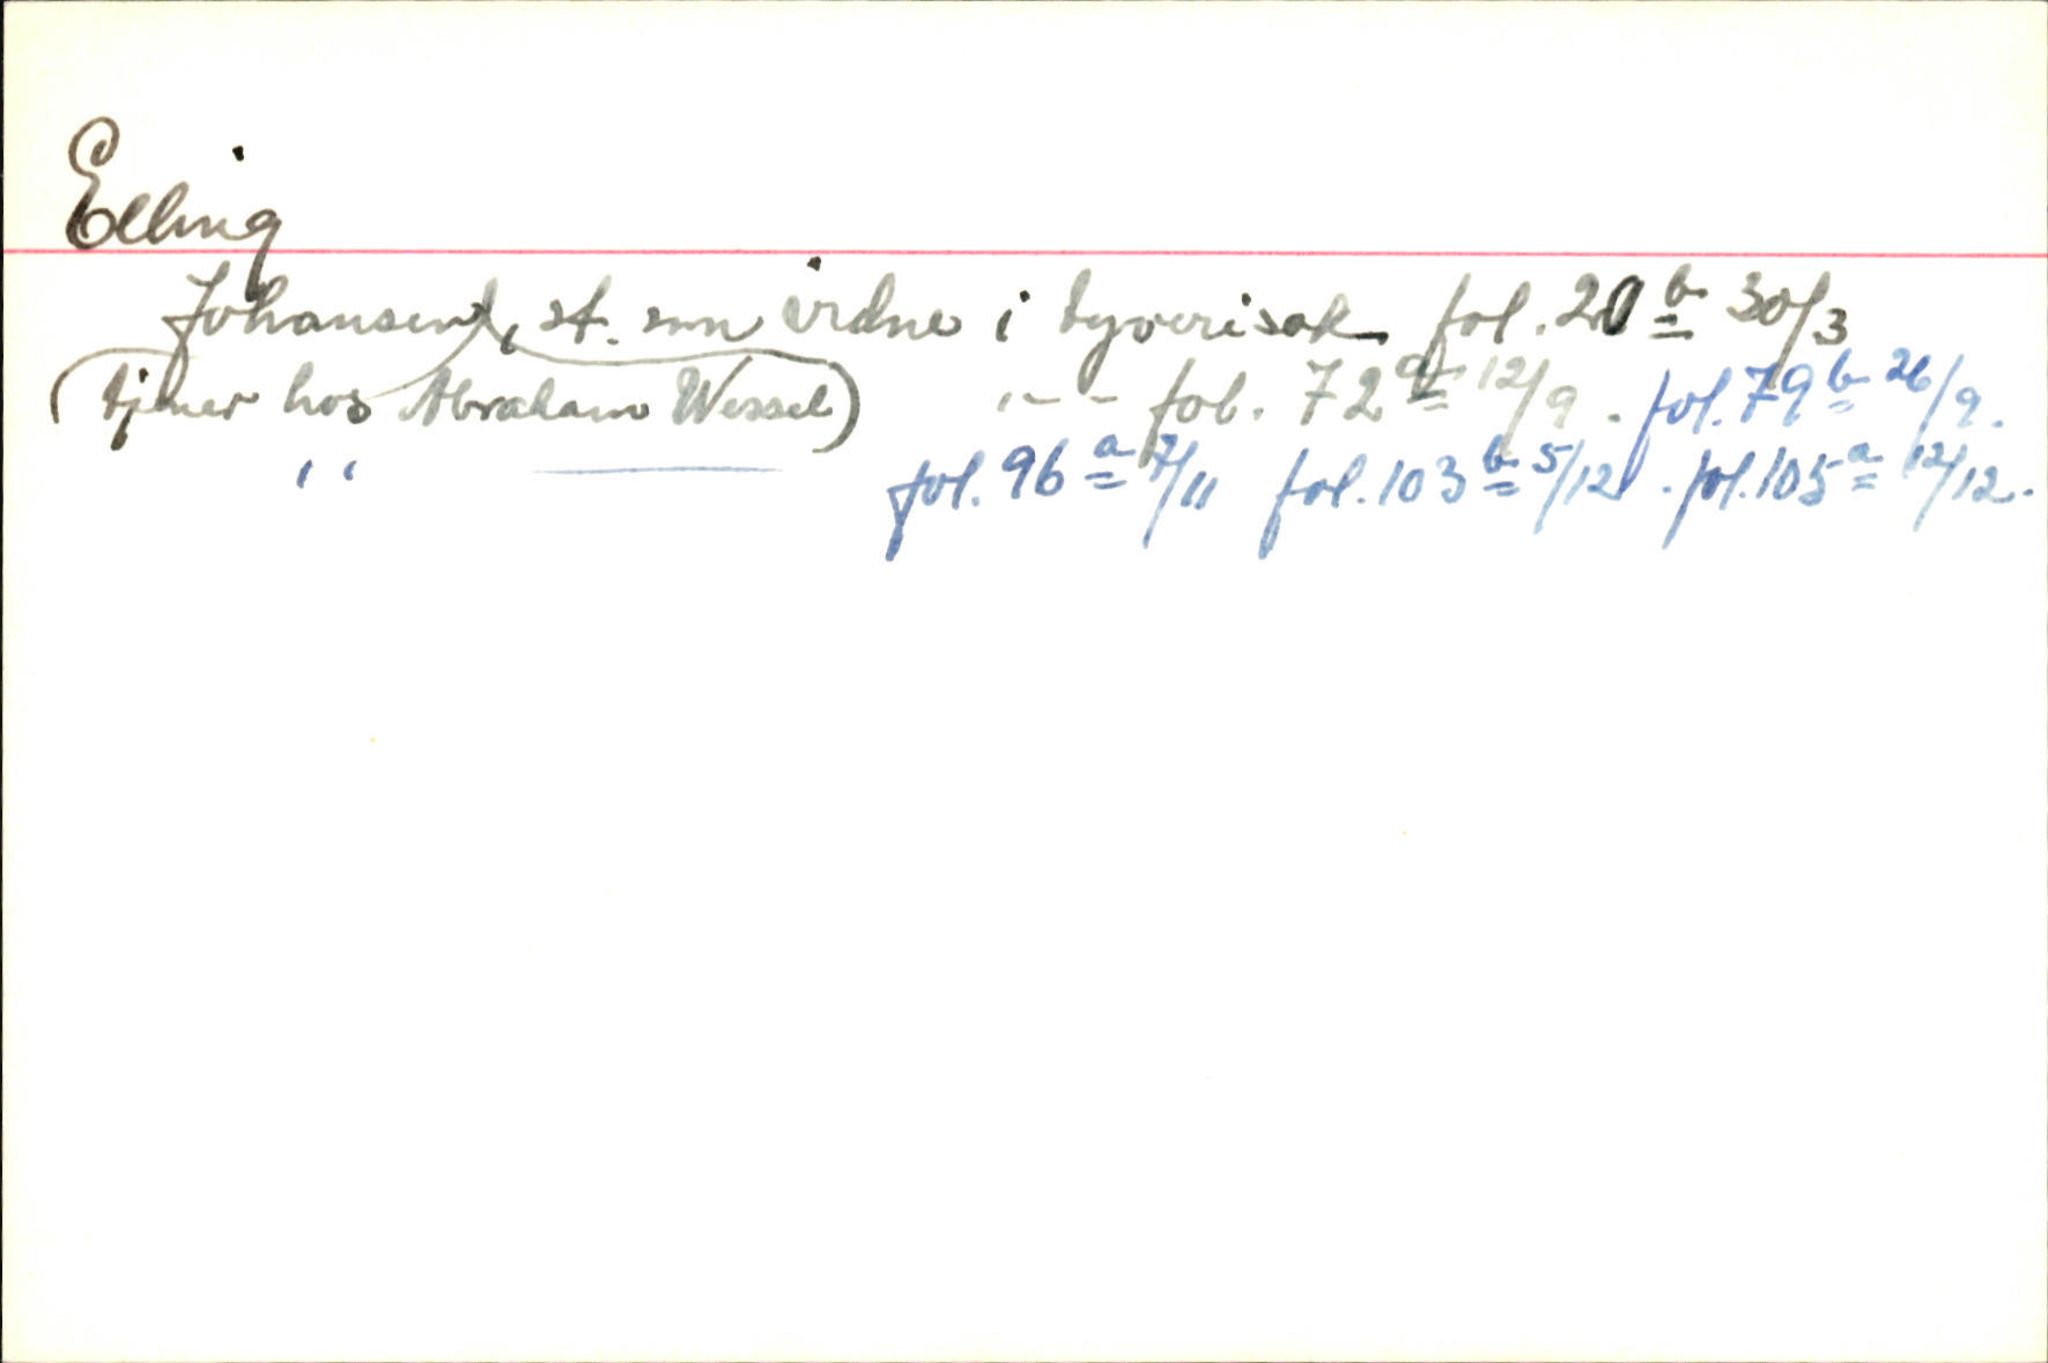 Elling
Johansen, st. som vidne i tyverisak fol. 20 b 30/3
(tjener hos Abraham Wessel) " - - fol. 72 a 12/9. fol. 79 b 26/9.
" — fol. 96 a 7/11 fol. 103 b 5/12. fol. 105 a 12/12.